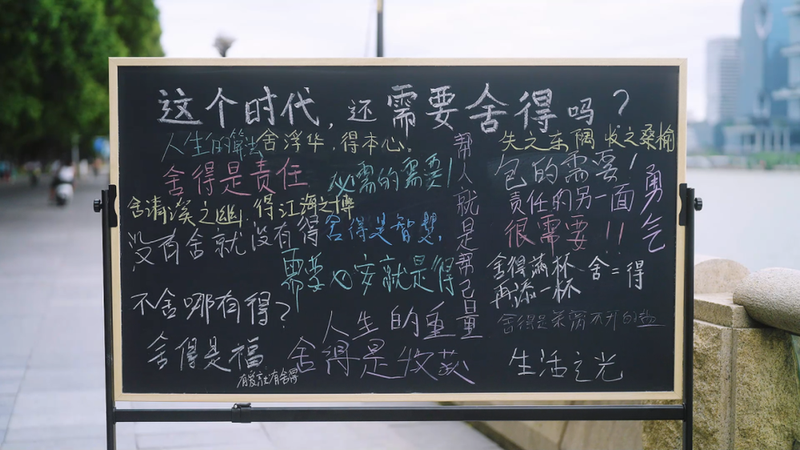 这个时代，还需要舍得吗？
舍浮华，得本心。
失之东隅 收之桑榆
舍得是责任
必需的需要！
包的需要！
责任的另一面
勇气
舍清溪之幽，得江海之博
没有舍就没有得
舍得是智慧，
很需要！！
帮人就是帮己
需要心安就是得
舍得满杯
再添一杯
舍=得
不舍哪有得？
人生的重量
舍得是福
有爱就有舍得
舍得是收获
生活之光